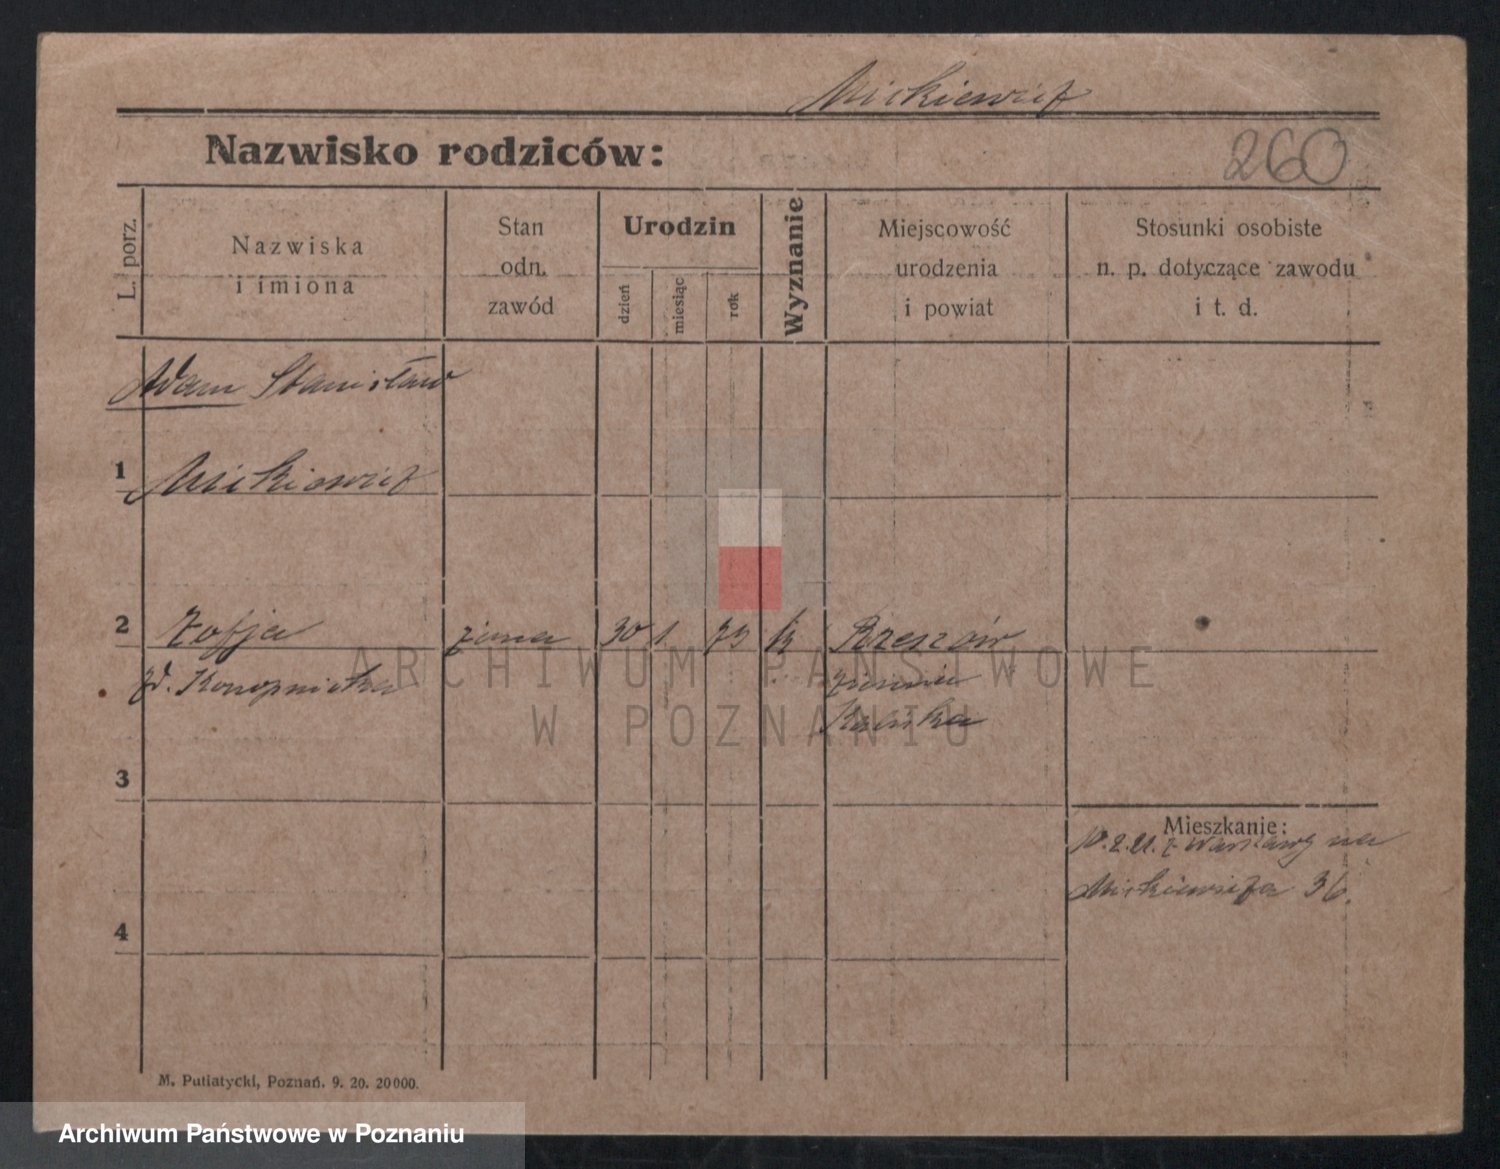 Mickiewicz
Nazwisko rodziców:
260
L. porz.
Nazwiska
i imiona
Stan
odn.
zawód
Urodzin
dzień
miesiąc
rok
Wyznanie
Miejscowość
urodzenia
i powiat
Stosunki osobiste
n. p. dotyczące zawodu
i t. d.
Adam Stanisław
1 Mickiewicz
2 Zofja żona 30 1 73 k Rzeszów
zd. Konopnicka
ziemia
3
Mieszkanie:
10.2.21. z Warszawy na
Mickiewicza 36.
4
M. Putiatycki, Poznań. 9. 20. 20000.
ARCHIWUM PAŃSTWOWE
W POZNANIU
Archiwum Państwowe w Poznaniu